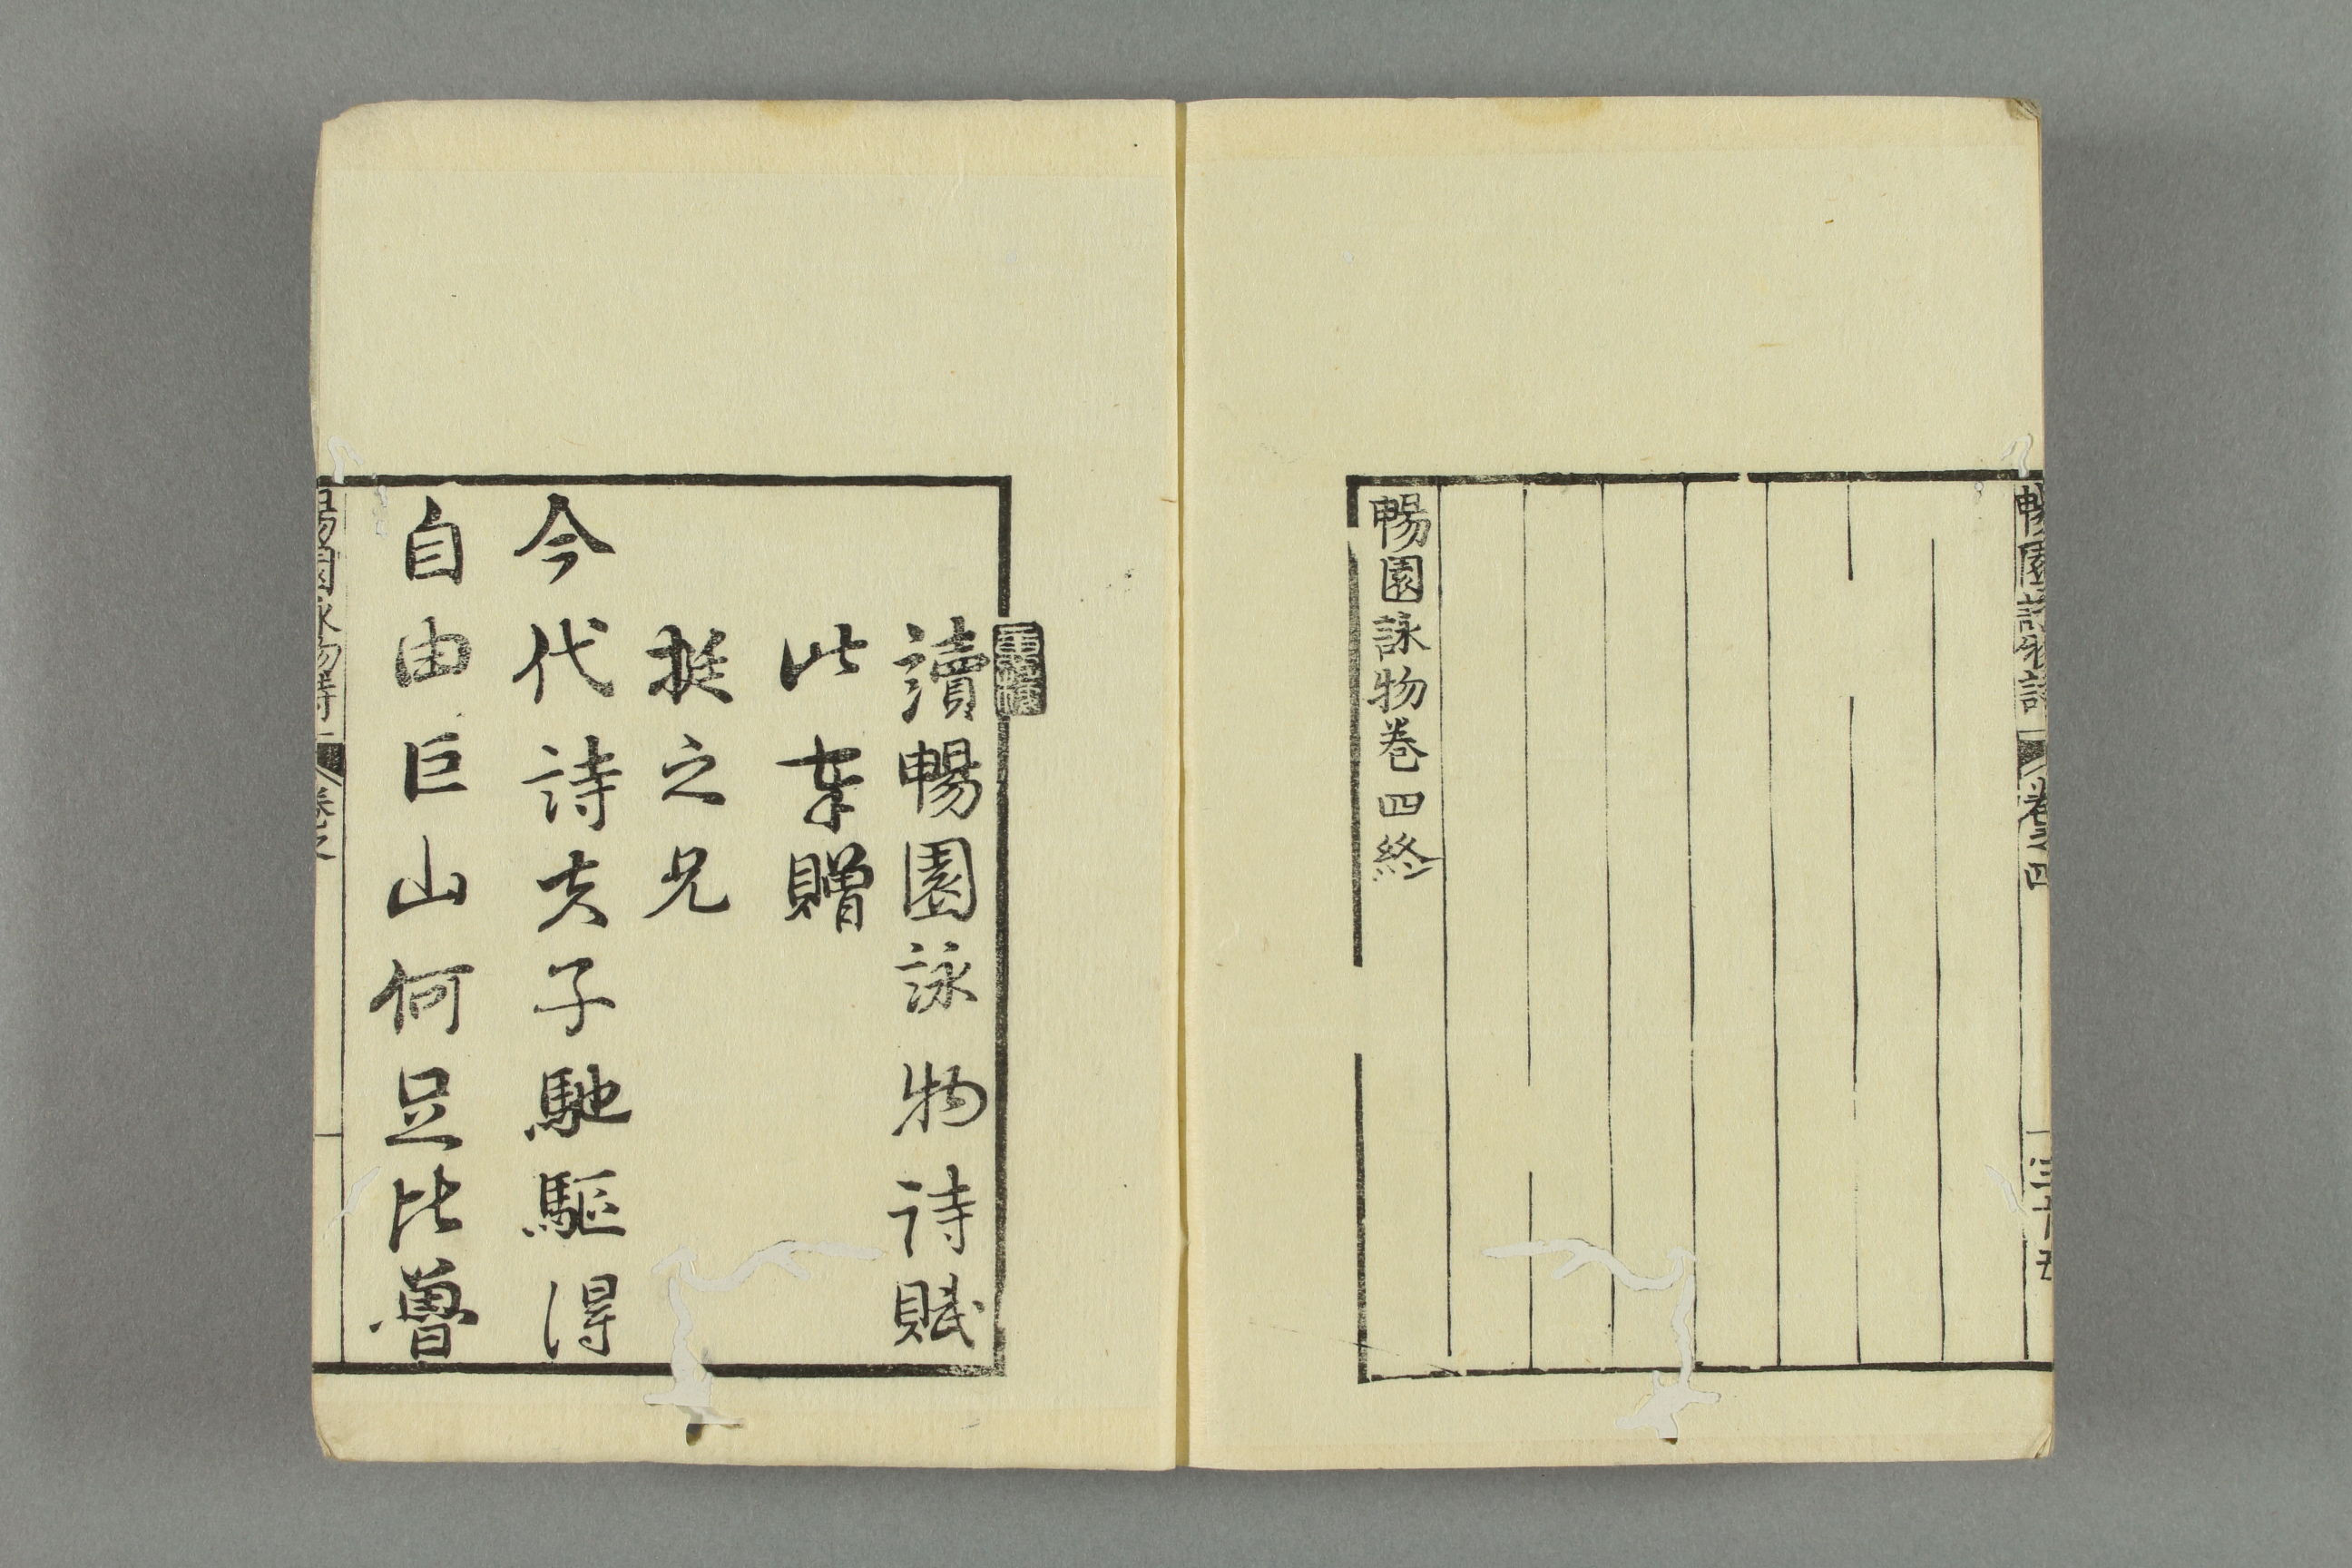 暢園詠物詩
卷之四
三十五
暢園詠物卷四終
讀暢園詠物詩賦
此奉贈
挺之兄
今代詩夫子馳驅得
自由巨山何足比魯
暢園詠物詩
卷之